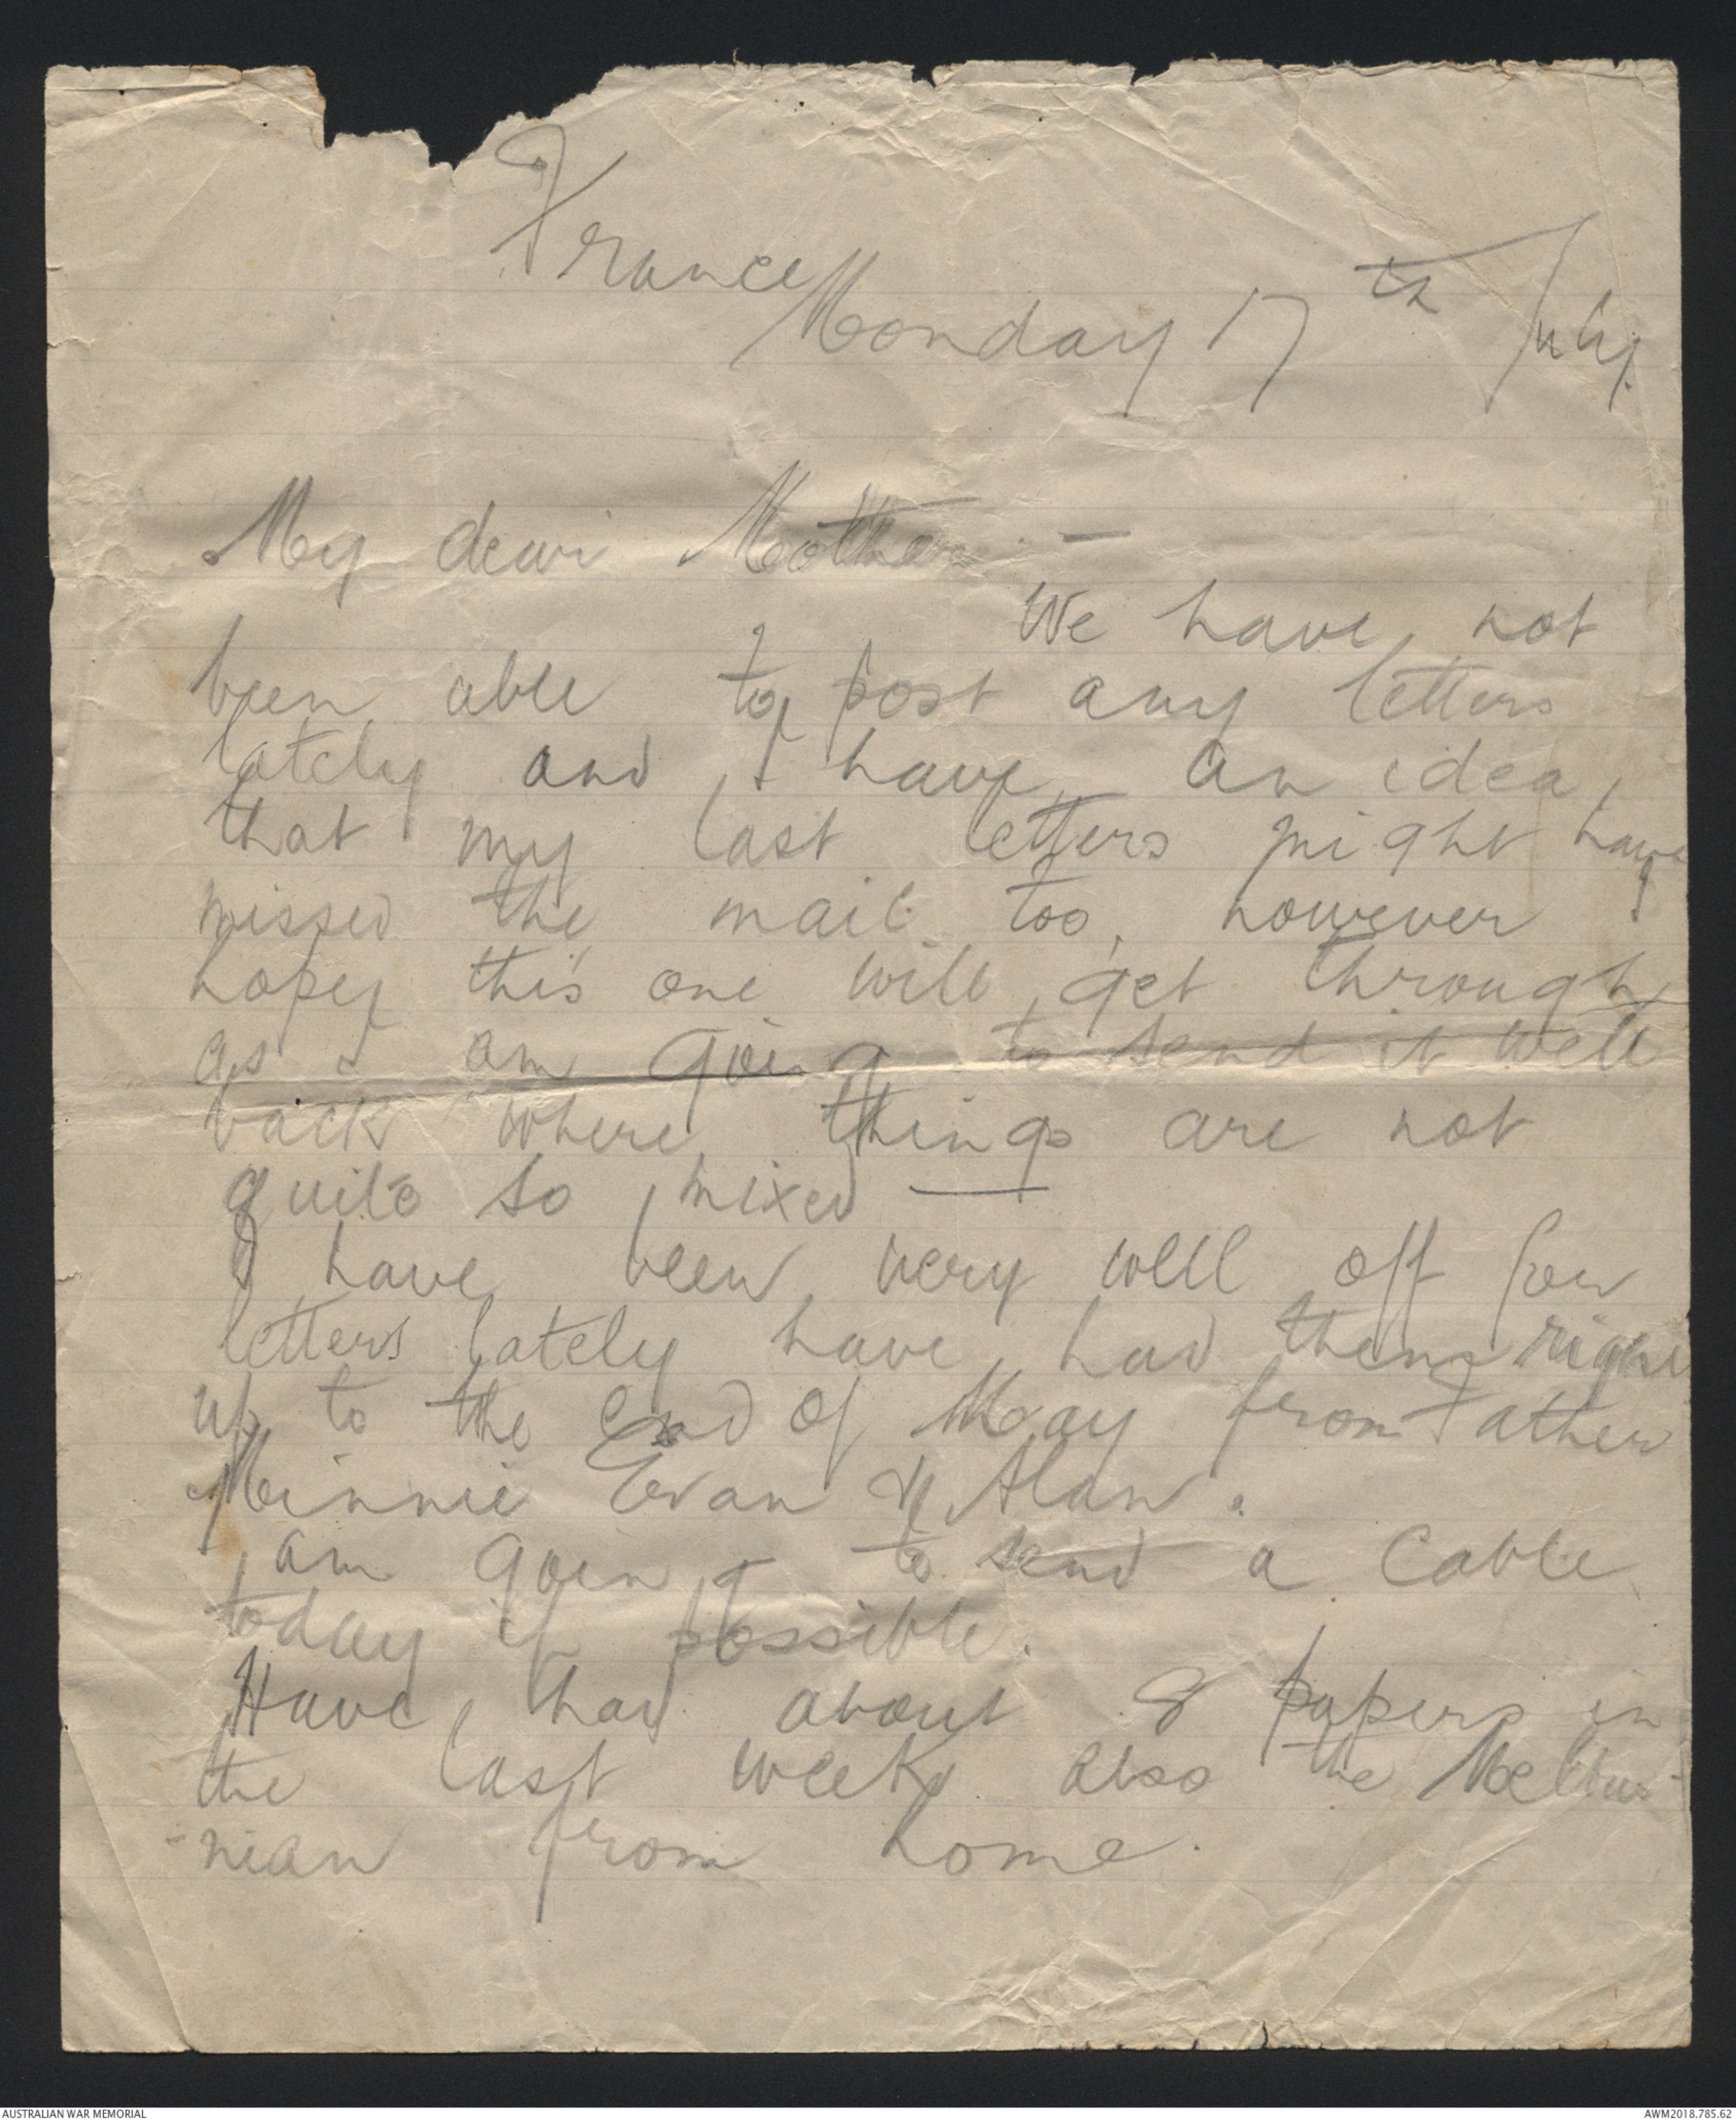 France
Monday 17th July.
My dear Mother -
We have not
been able to post any letters
lately and I have an idea
that my last letters might have
missed the mail too, however I
hope this one will get through
as I am going to send it well
back where things are not
quite so mixed —
I have been very well off for
letters lately have had them right
up to the end of May from Father
Minnie Evan & Alan.
I am going to send a cable
today if possible.
Have had about 8 papers in
the last week also the Melbur-
-nian from home.
AUSTRALIAN WAR MEMORIAL
AWM2018.785.62